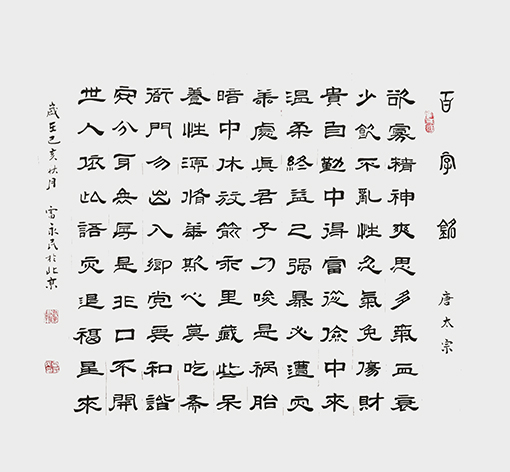 百字銘 唐太宗
欲寡精神爽思多氣血衰
少飲不亂性忍氣免傷財
貴自勤中得富從儉中來
温柔終益己强暴必遭灾
善處真君子刁唆是祸胎
暗中休放箭乖里藏些呆
養性須脩善欺心莫吃斋
衙門勿出入鄉党要和諧
安分身無辱是非口不開
世人依此語灾退福星來
歲在己亥秋月 雷永民於北京